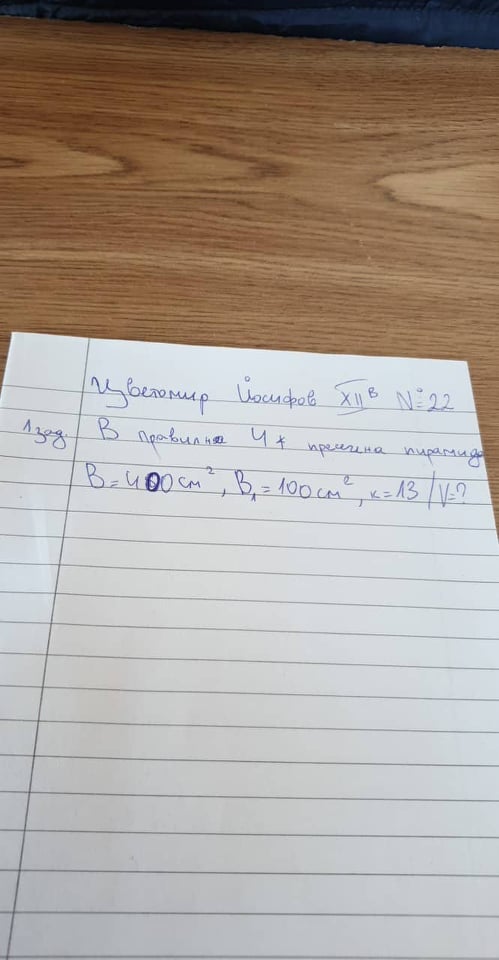 Цветомир Йосифов XII В №22
1зад. В правилна 4х пресечена пирамида
B=400см², B₁=100см², к=13 / V=?